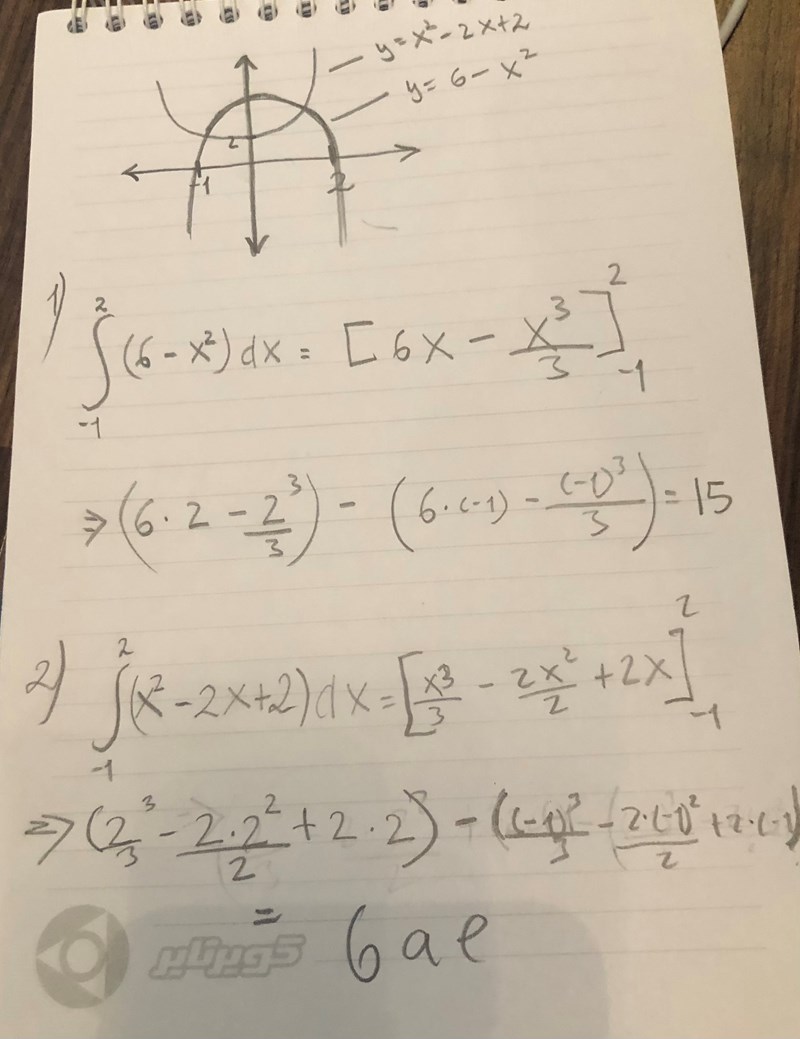 y = x² - 2x + 2
y = 6 - x²
2
-1 2
1) ∫₋₁² (6 - x²) dx = [6x - x³/3]₋₁²
⇒ (6 · 2 - 2³/3) - (6 · (-1) - (-1)³/3) = 15
2) ∫₋₁² (x² - 2x + 2) dx = [x³/3 - 2x²/2 + 2x]₋₁²
=> (2³/3 - 2 · 2²/2 + 2 · 2) - ((-1)³/3 - 2 · (-1)²/2 + 2 · (-1)
= 6 ae
كويرتاير